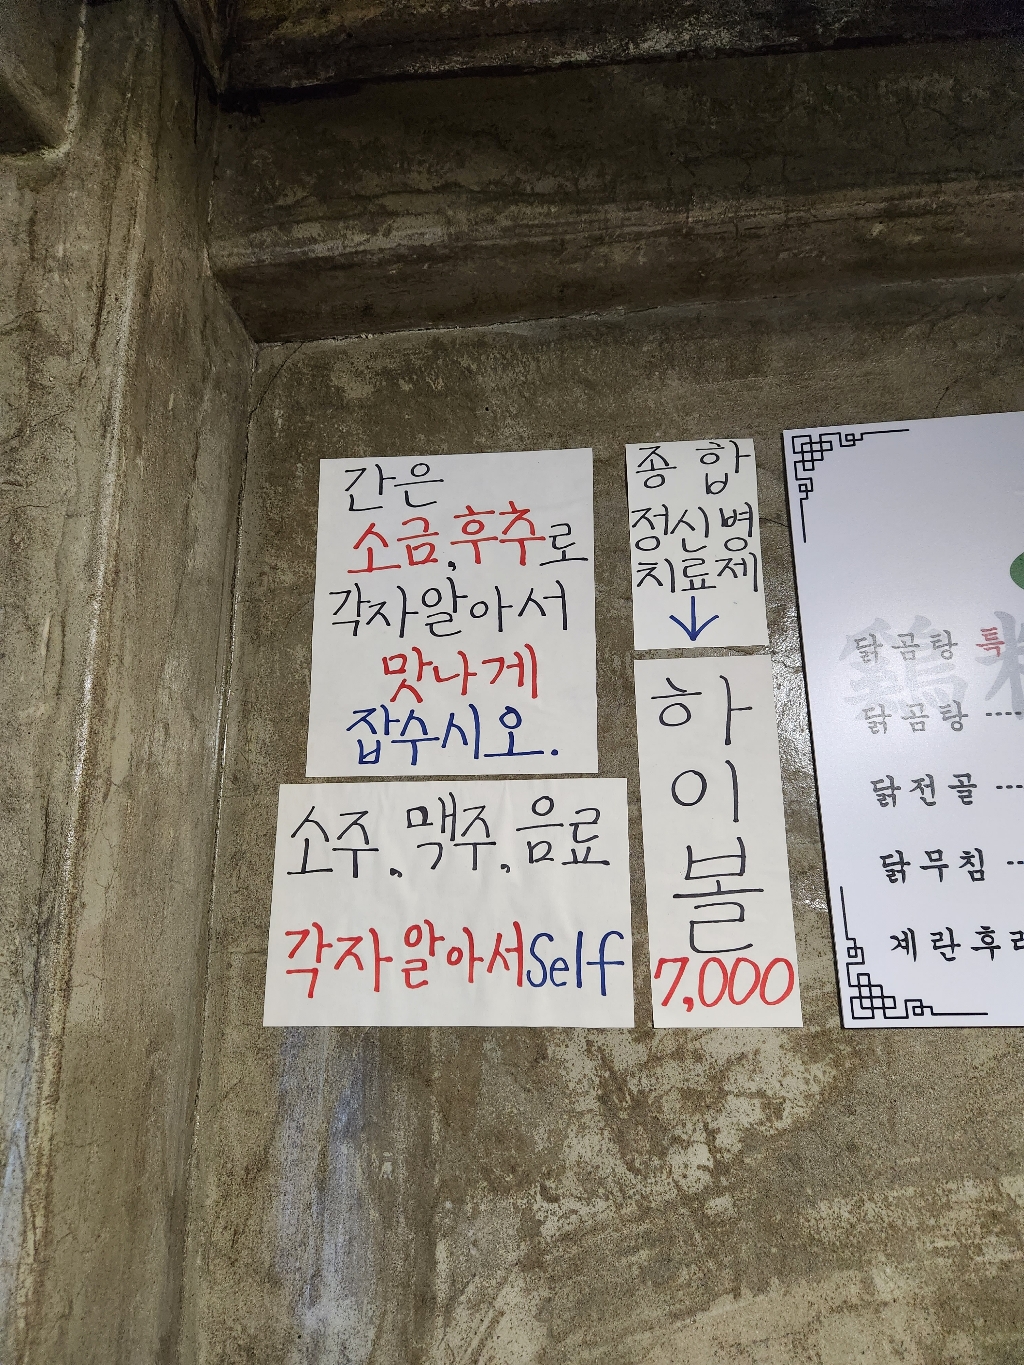 간은
소금, 후추로
각자 알아서
맛나게
잡수시오.
소주, 맥주, 음료
각자 알아서 Self
종합
정신병
치료제
↓
하
이
볼
7,000
닭곰탕 특
닭곰탕 ····
닭전골 ···
닭무침 ··
계란후라